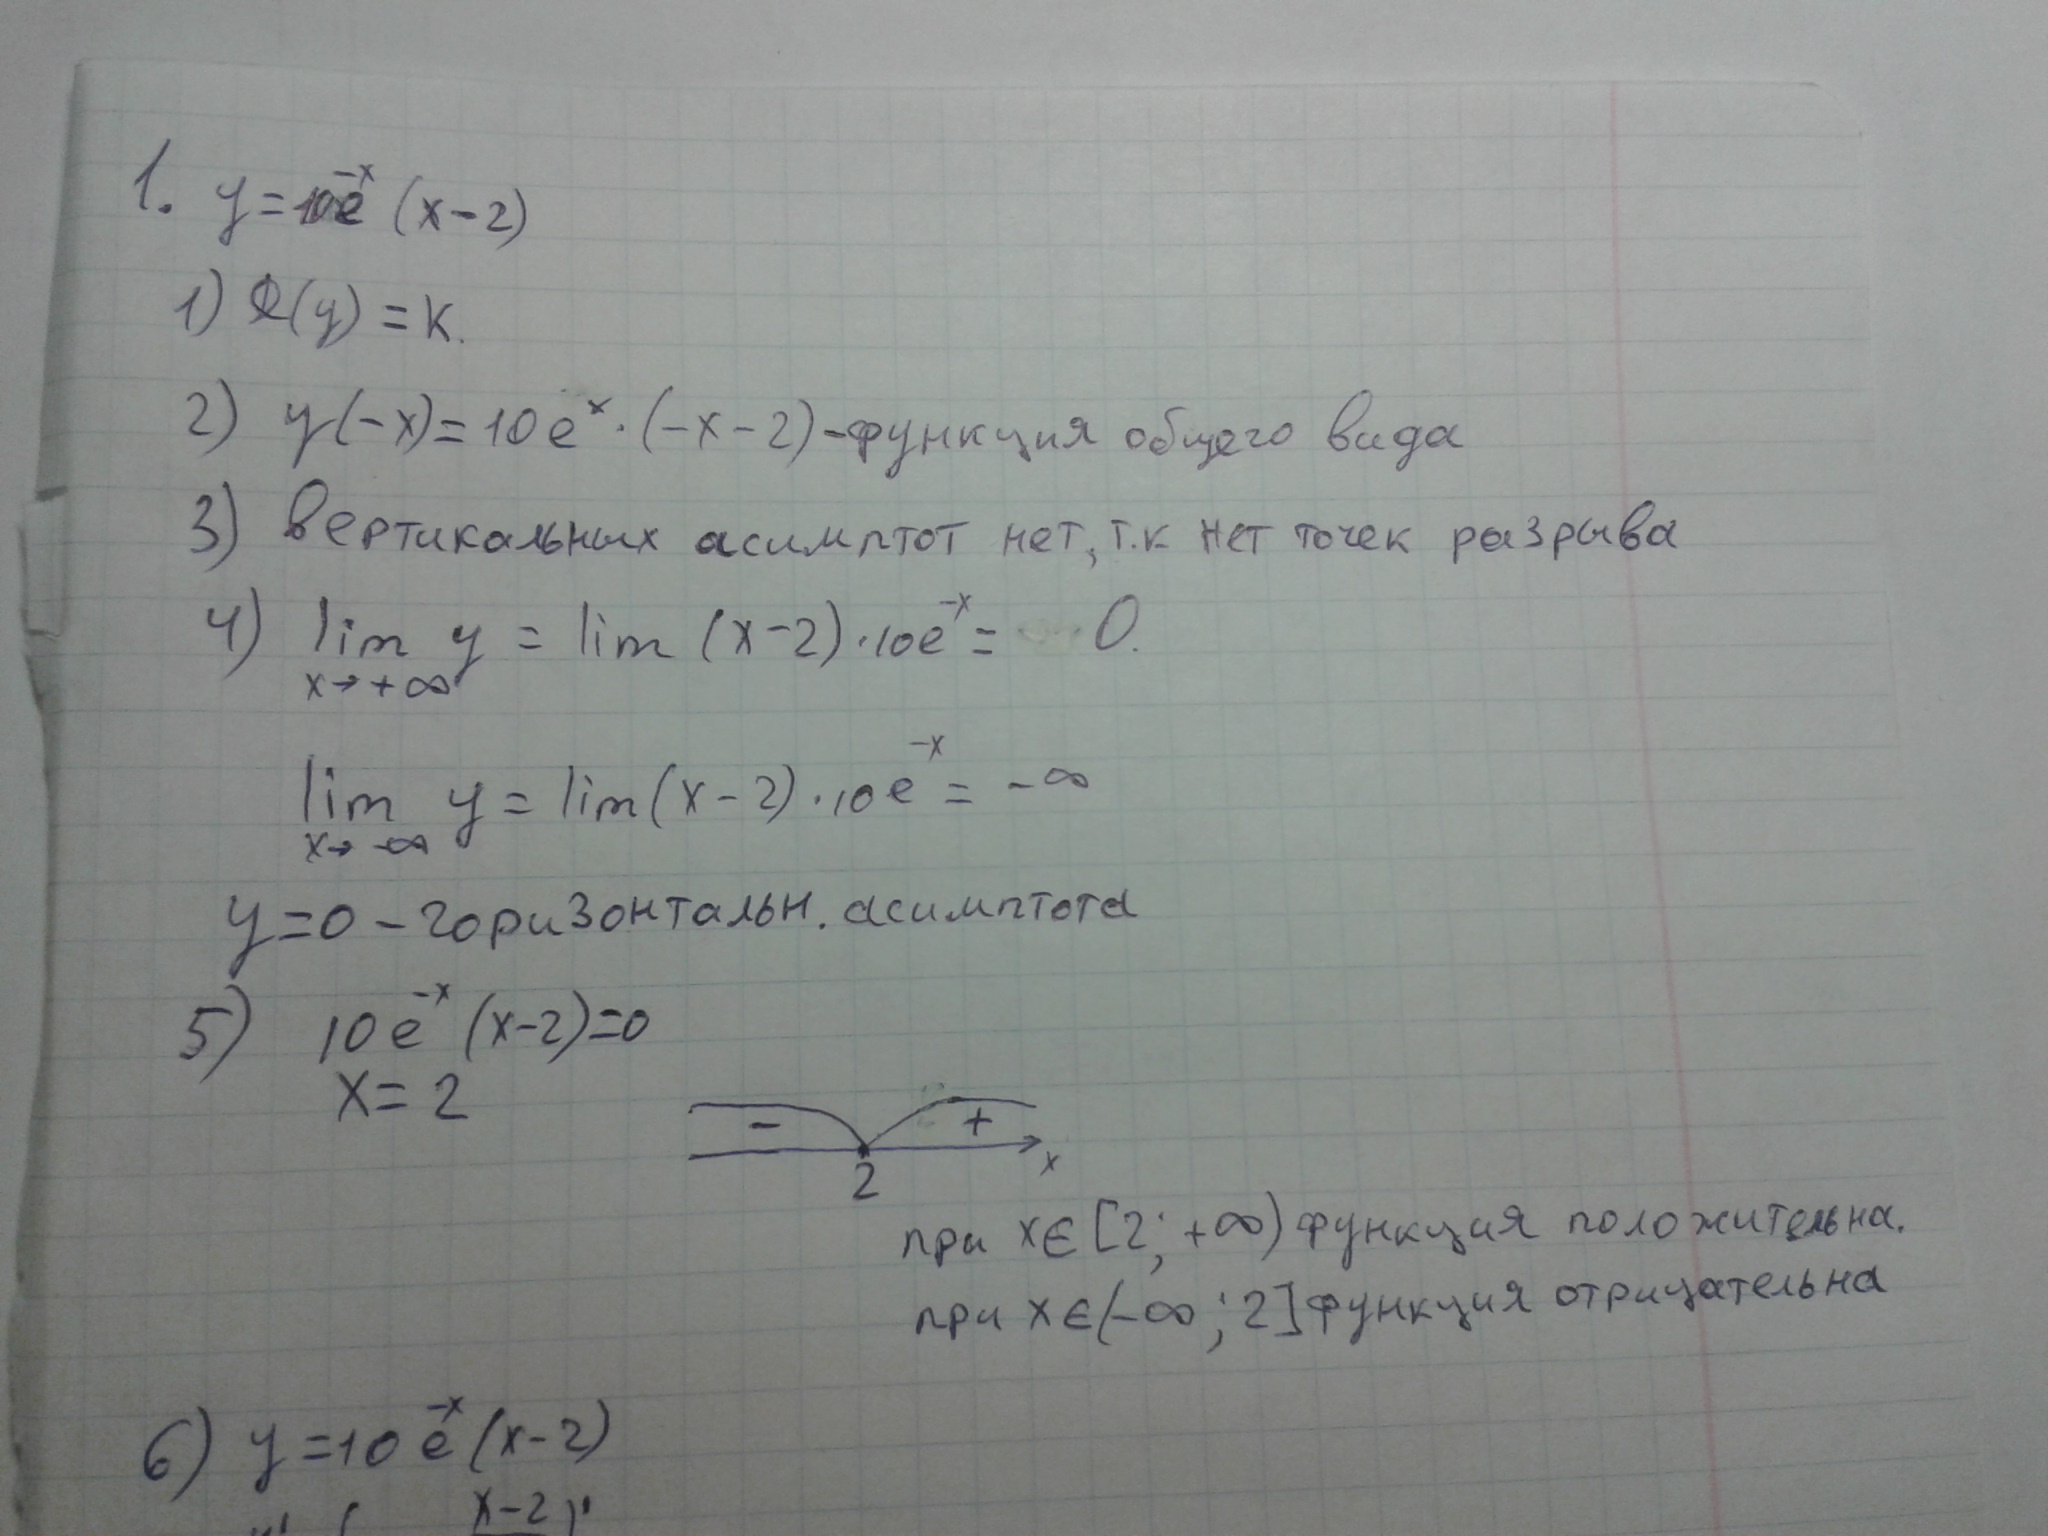 1. y=10e^{-x} (x-2)
1) D(y) = R.
2) y(-x)=10e^x·(-x-2)-функция общего вида
3) Вертикальных асимптот нет, т.к нет точек разрыва
4) lim y = lim (x-2)·10e^{-x} = 0.
x→+∞
lim y = lim(x-2)·10e^{-x} = -∞
x→-∞
y=0 - горизонтальн. асимптота
5) 10e^{-x} (x-2)=0
x=2
- +
2 x
при x∈[2;+∞) функция положительна.
при x∈(-∞;2] функция отрицательна
6) y=10e^{-x}(x-2)
x-2